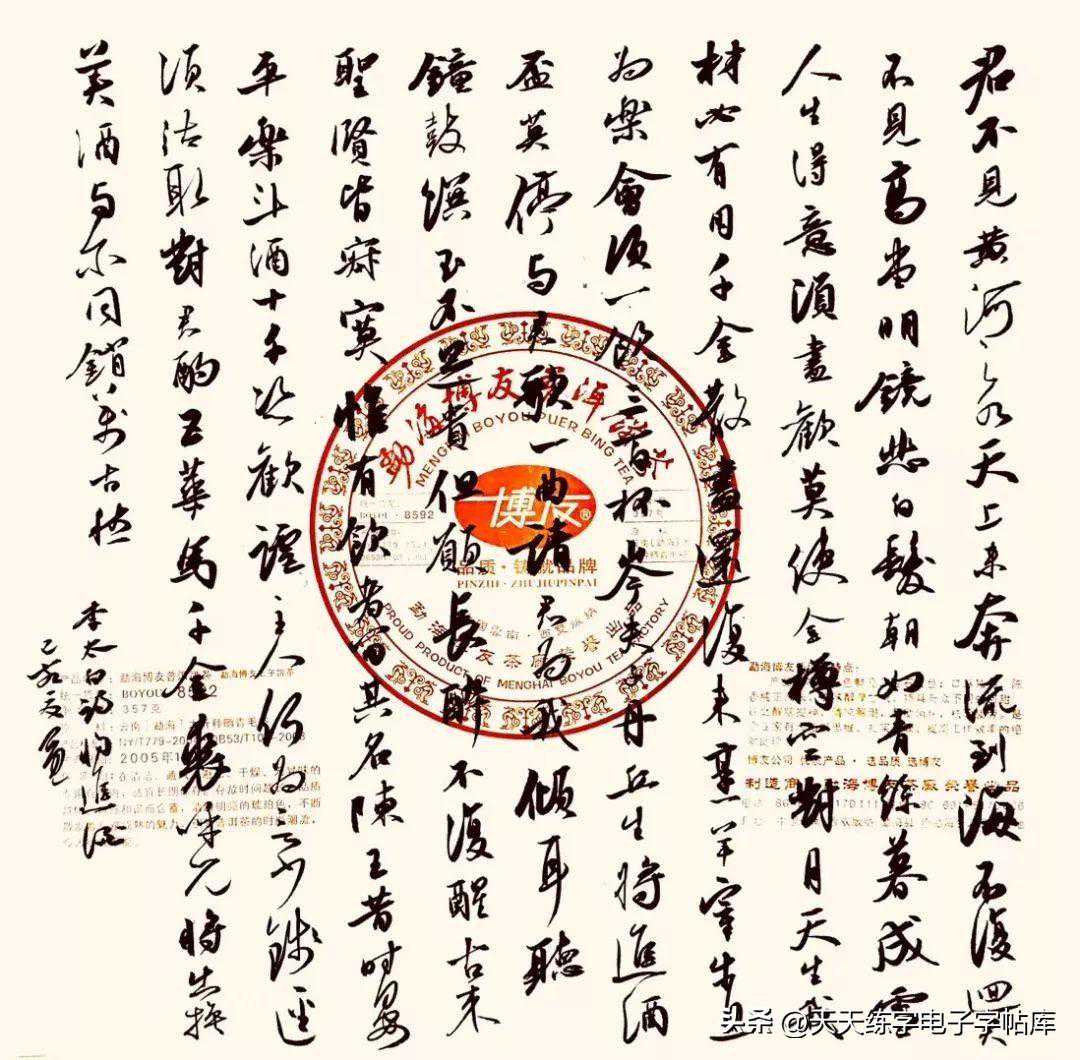 君不見黄河之水天上来奔流到海不復迴君
不見高堂明鏡悲白髮朝如青絲暮成雪
人生得意須盡歡莫使金樽空對月天生我
材必有用千金散盡還復来烹羊宰牛且
为樂會須一飲三百杯岑夫丹丘生將進酒
盃莫停与君歌一曲請君为我傾耳聽
鐘鼓饌玉不足貴但願長醉不復醒古来
聖賢皆寂寞惟有飲者留其名陳王昔時宴
平樂斗酒十千恣歡謔主人何为言少錢逕
須沽取對君酌五華馬千金裘呼兒將出換
美酒与尔同銷萬古愁
李太白詩将進酒
己亥
勐海博友洱茶
MENGHAI BOYOU PUER BING TEA
8592
博友®
品质·铸就品牌
PINZHI·ZHUJIUPINPAI
PROUD PRODUCT OF MENGHAI BOYOU TEA FACTORY
BOYOU 8592
357克
2005年
头条 @天天练字电子字帖库